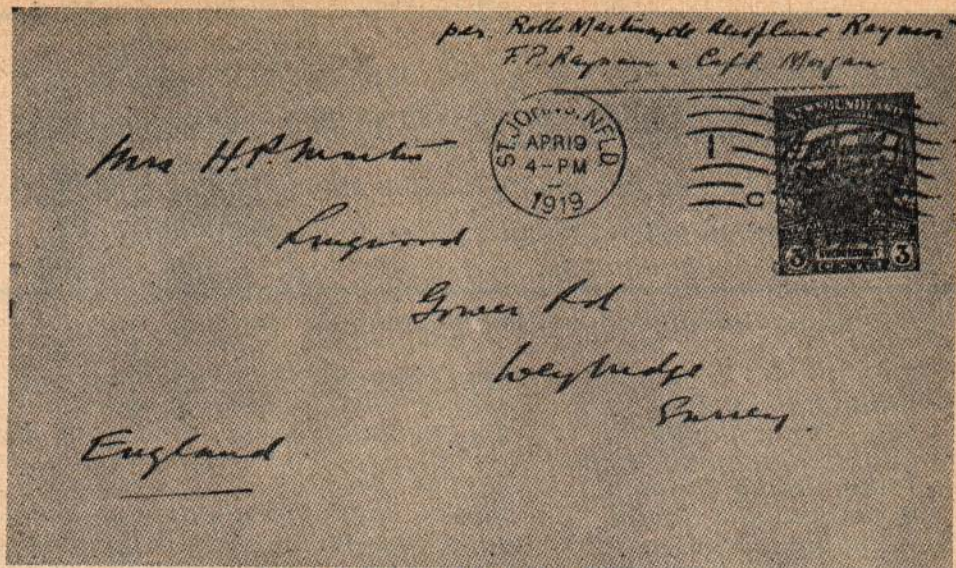 per. Rolls Martinsyde Aeroplane Raymor
F.P. Raynham & Capt. Morgan
ST. JOHN'S, NFLD
APR 19
4-PM
1919
NEWFOUNDLAND
3 3
CENTS
Mrs H.P. Martin
Gower Rd
Weybridge
Surrey.
England